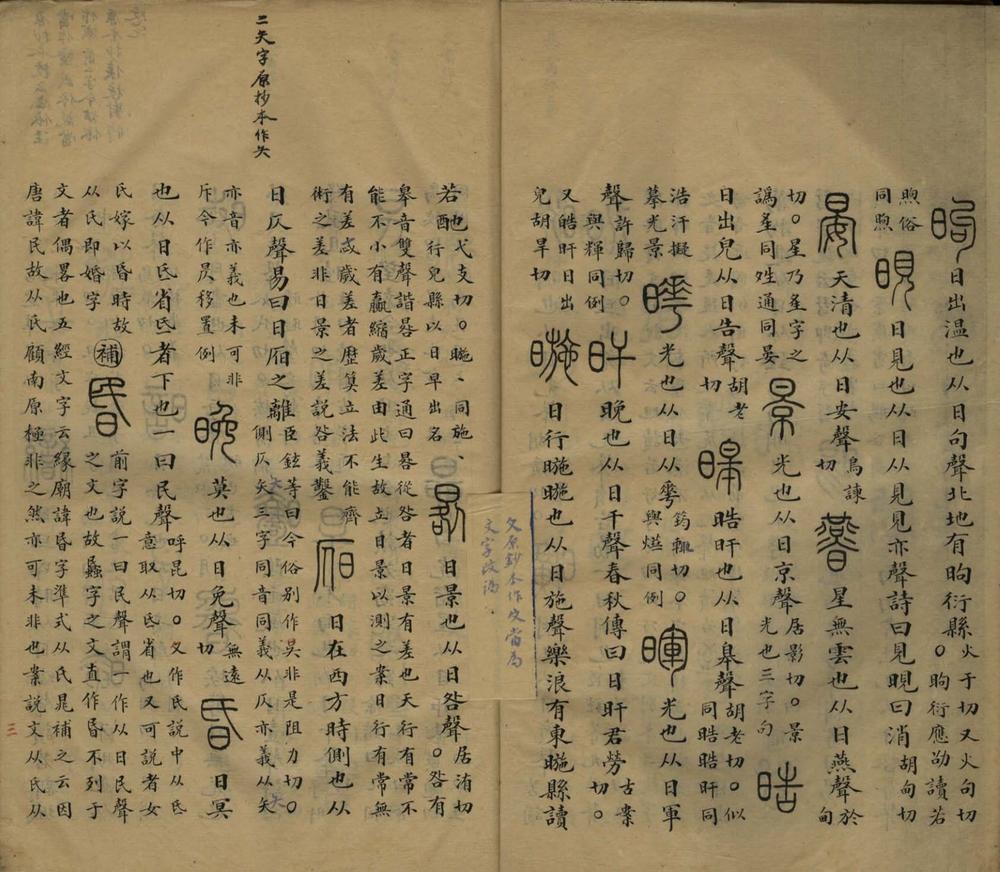 昫日出温也从日句聲北地有昫衍縣火于切又火句切。昫衍應劭讀若
煦俗同煦晛日見也从日从見見亦聲詩曰見晛曰消胡甸切
晏天清也从日安聲烏諫切㬫星無雲也从日燕聲於甸
切。星乃𡉚字之譌𡉚同姓通同晏景光也从日京聲居影切。景光也三字句晧
日出皃从日告聲胡老切暤晧旰也从日皋聲胡老切。似同晧晧旰同
浩汗擬摹光景曄光也从日从𠌶筠輒切。與爗同例暉光也从日軍
聲許歸切。與輝同例旰晚也从日干聲春秋傳曰日旰君勞古案切。
又皓旰日出皃胡旱切暆日行暆暆也从日施聲樂浪有東暆縣讀
二夨字原抄本作矢
若酏弋支切。暆、同施、行皃縣以日早出名晷日景也从日咎聲居洧切。咎有
皋音雙聲諧晷正字通曰晷從咎者日景有差也天行有常不
能不小有贏縮歲差由此生故立日景以測之案日行有常無
有差忒歲差者歷算立法不能齊術之差非日景之差説咎義鑿𣅔日在西方時側也从
日仄聲易曰日𣅔之離臣鉉等曰今俗别作昃非是阻力切。側仄夨三字同音同義从仄亦義从夨
亦音亦義也未可非斥今作昃移置例晚莫也从日免聲無遠切昏日冥
也从日氐省氐者下也一曰民聲呼昆切。又作氏説中从氐意取从氐省也又可説者女
氏嫁以昏時故从氏即婚字補昬前字説一曰民聲謂一作从日民聲之文也故蟁字之文直作昬不列于
文者偶畧也五經文字云緣廟諱昬字準式从氏晁補之云因
唐諱民故从氏顧南原極非之然亦可未非也案説文从氏从
三
原鈔本作文當為
文字改